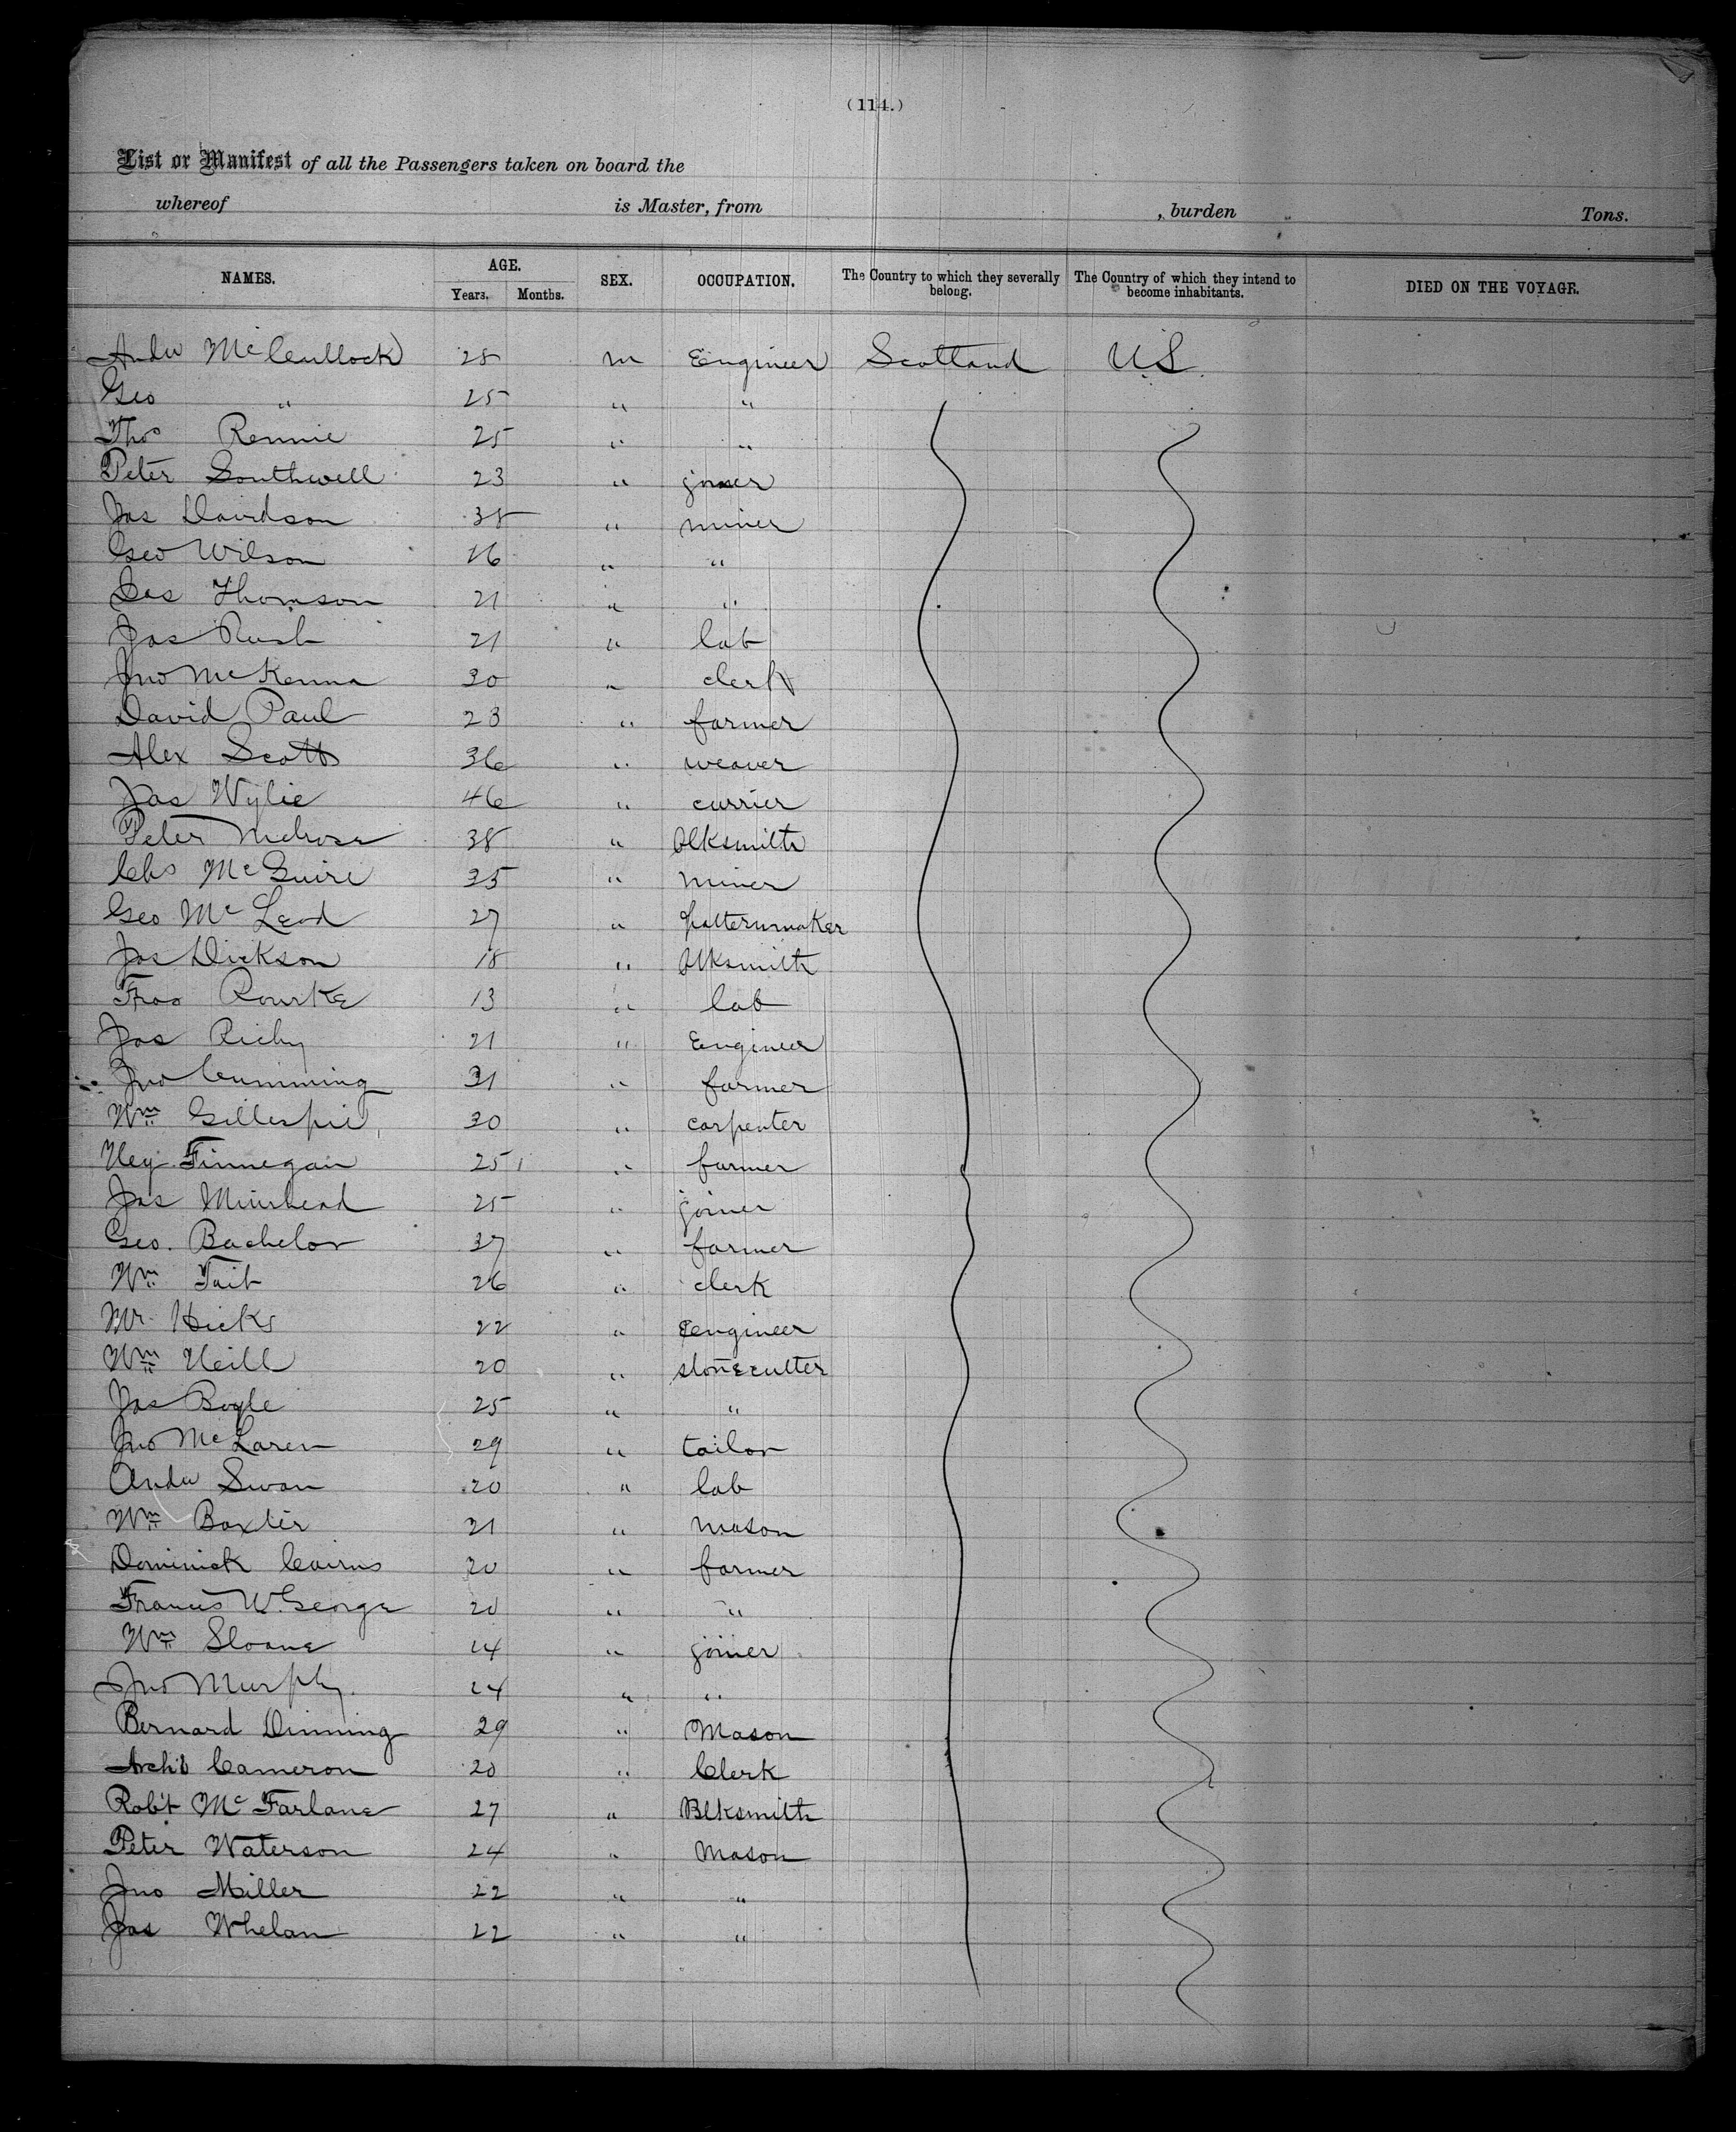 (114.)
List or Manifest of all the Passengers taken on board the
whereof is Master, from , burden Tons.
NAMES. AGE. Years. Months. SEX. OCCUPATION. The Country to which they severally belong. The Country of which they intend to become inhabitants. DIED ON THE VOYAGE.
Andw McCullock 28 m Engineer Scotland U.S.
Geo " 25 " "
Thos Rennie 25 " "
Peter Southwell 23 " joiner
Jas Davidson 38 " miner
Geo Wilson 26 " "
Jas Thomson 21 " "
Jas Rush 21 " lab
Jno McKenna 30 " clerk
David Paul 23 " farmer
Alex Scott 36 " weaver
Jas Wylie 46 " currier
Peter Melrose 38 " Blksmith
Chs McGuire 35 " miner
Geo McLeod 27 " patternmaker
Jas Dickson 18 " Blksmith
Rourke 13 " lab
Jas Richy 21 " Engineer
Jno Cumming 31 " farmer
Wm Gillespie 30 " carpenter
Finnegan 25 " farmer
Jas Muirhead 25 " joiner
Geo. Bachelor 37 " farmer
Wm Tait 26 " clerk
Mr. Hicks 22 " Engineer
Wm Neill 20 " stonecutter
Jas Boyle 25 " "
Jno McLaren 29 " tailor
Andw Swan 20 " lab
Wm Baxter 21 " mason
Dominick Cairns 20 " farmer
Francis W. George 20 " "
Wm Sloane 24 " joiner
Jno Murphy 24 " "
Bernard Dinning 29 " Mason
Archd Cameron 20 " Clerk
Robt McFarlane 27 " Blksmith
Peter Waterson 24 " Mason
Jno Miller 22 " "
Jas Whelan 22 " "